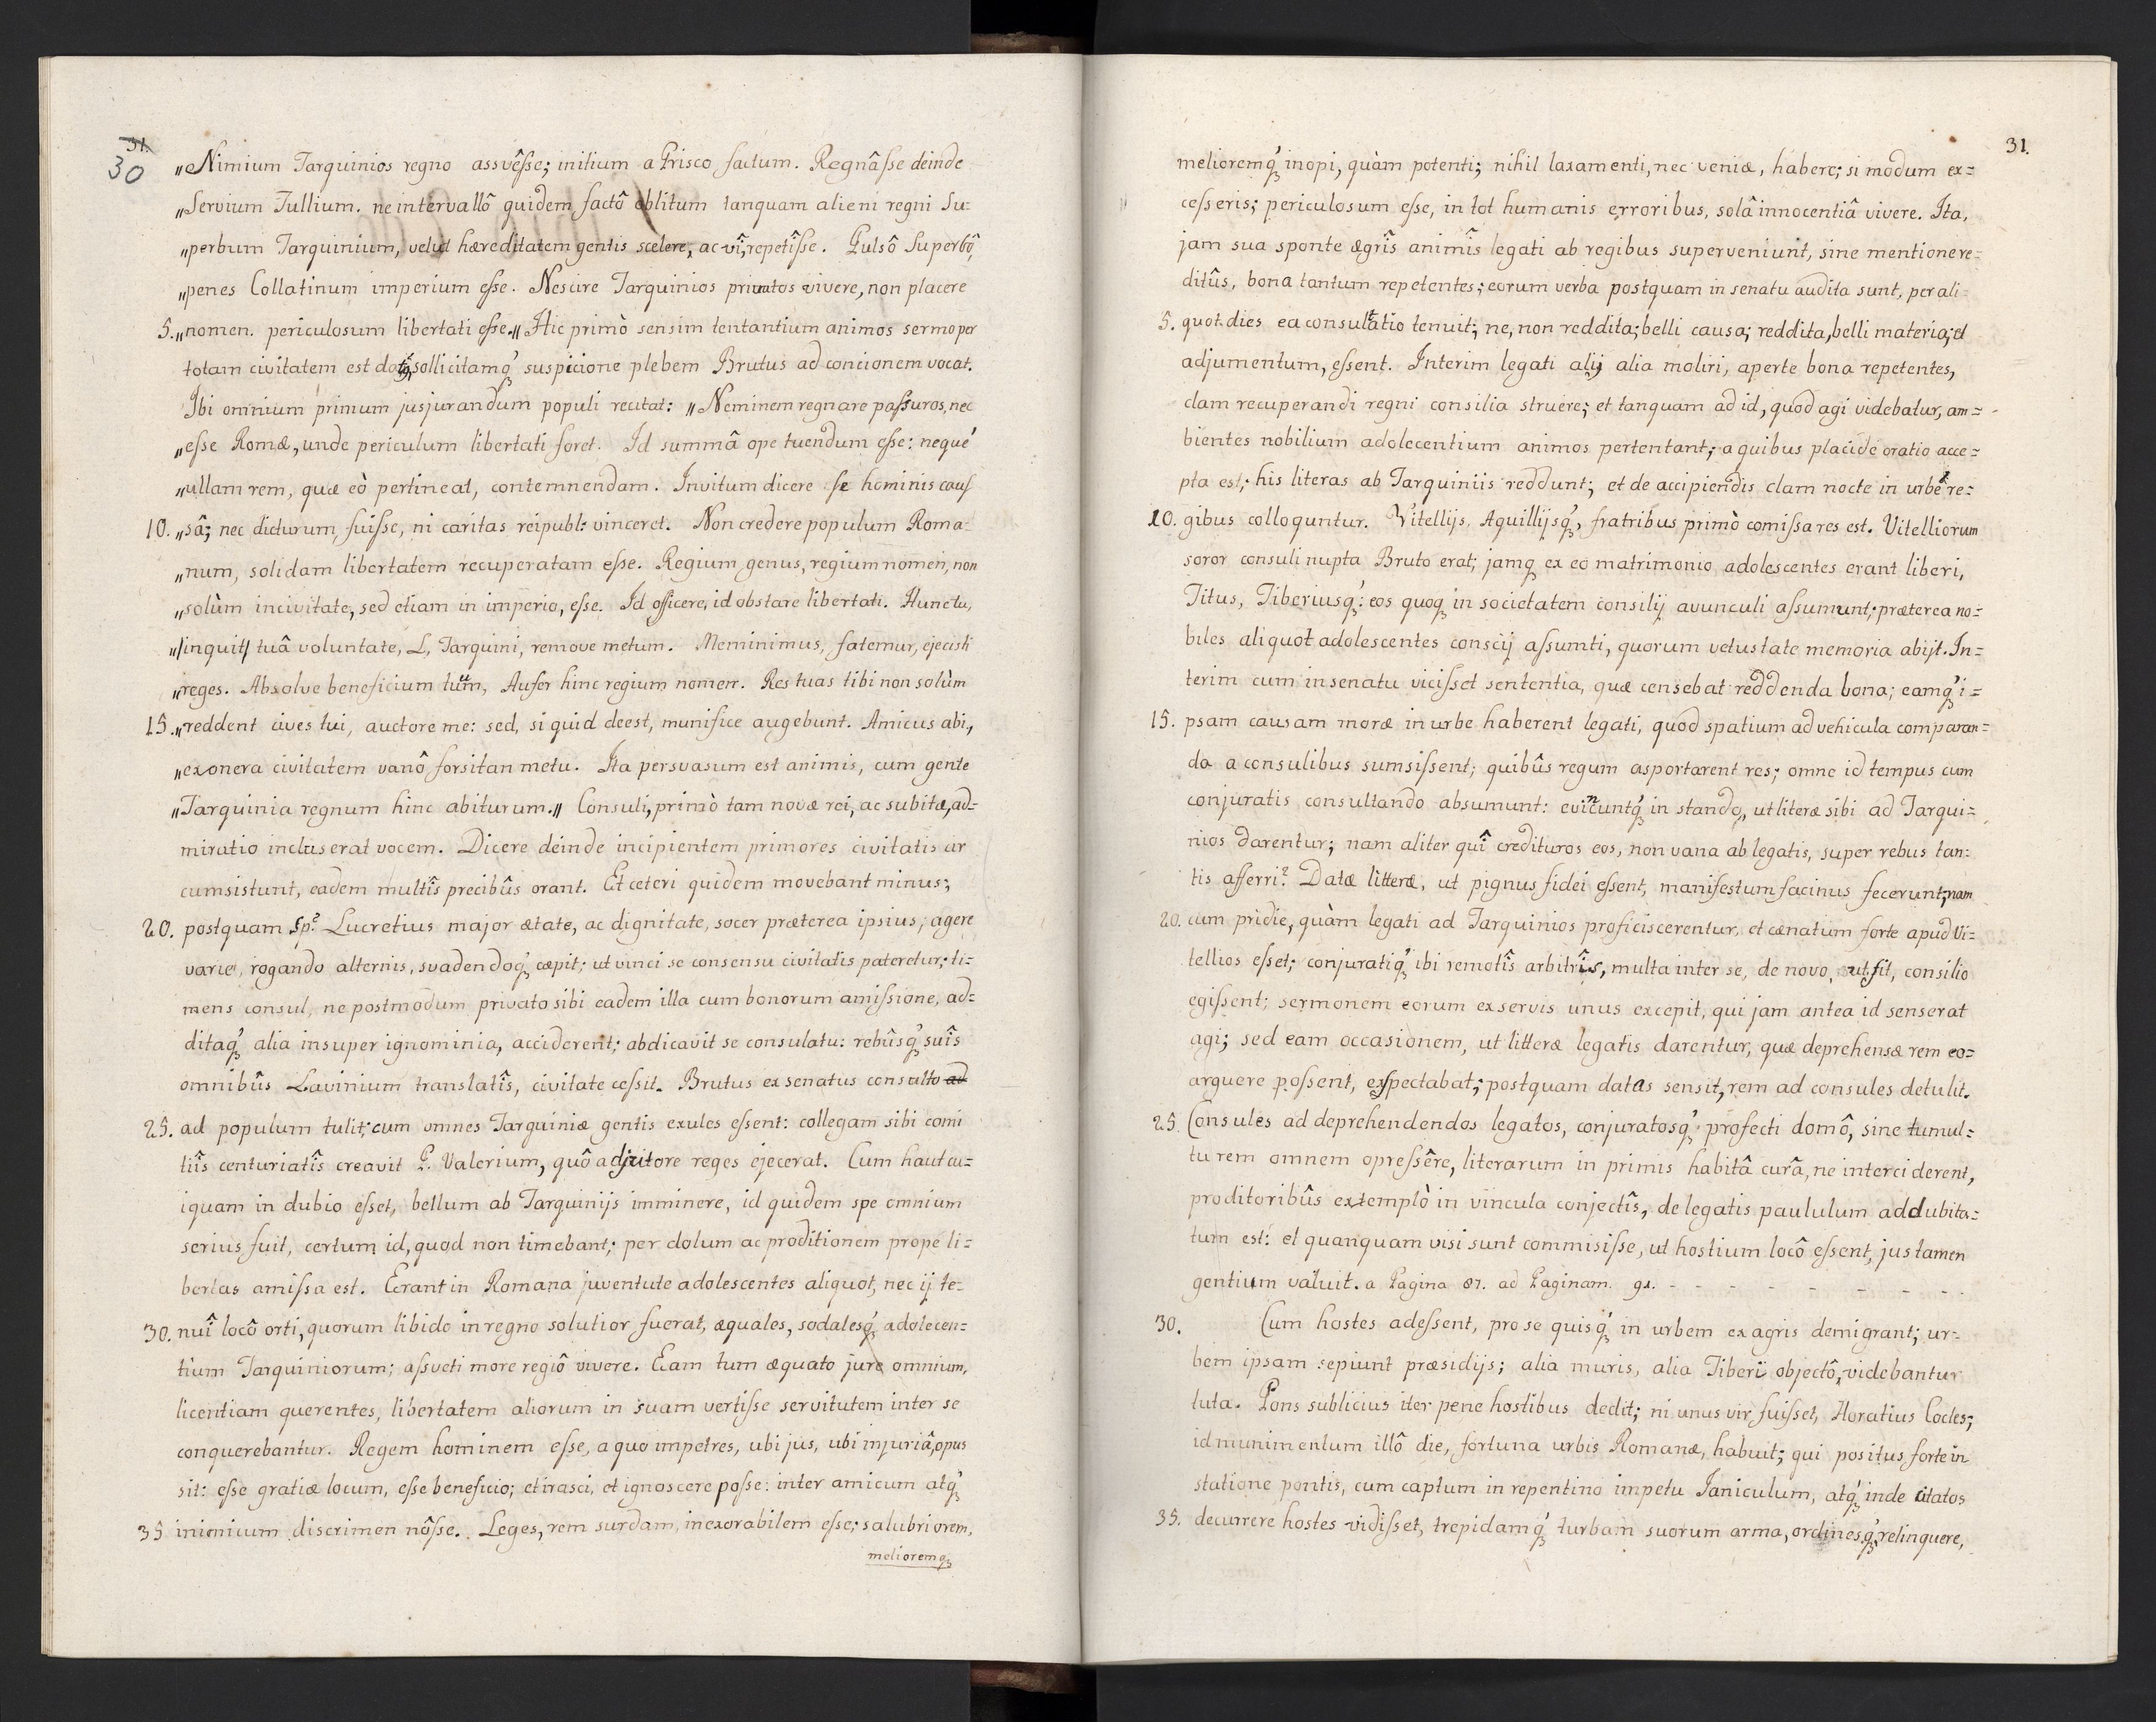 31.
30
„Nimium Tarquinios regno assvêsse; initium a Prisco factum. Regnâsse deinde
„Servium Tullium. ne intervallô quidem factô oblitum tanquam alieni regni Su-
„perbum Tarquinium, velut hæreditatem gentis scelere, ac vî, repetîsse. Pulsô Superbô,
„penes Collatinum imperium esse. Nescire Tarquinios privatos vivere, non placere
5. „nomen. periculosum libertati esse.„ Hic primò sensim tentantium animos sermo per
totam civitatem est datq, sollicitamq́ suspicione plebem Brutus ad concionem vocat.
Ibi omnium primum jusjurandum populi recitat: „Neminem regnare passuros, nec
„esse Romæ, unde periculum libertati foret. Id summâ ope tuendum esse: neque
„ullam rem, quæ eò pertineat, contemnendam. Invitum dicere se hominis caus
10. „sâ; nec dicturum fuisse, ni caritas reipubl: vinceret. Non credere populum Roma-
„num, solidam libertatem recuperatam esse. Regium genus, regium nomen, non
„solùm in civitate, sed etiam in imperio, esse. Id officere, id obstare libertati. Hunc tu,
„/inquit/ tuâ voluntate, L, Tarquini, remove metum. Meminimus, fatemur, ejecisti
„reges. Absolve beneficium tuum, Aufer hinc regium nomen. Res tuas tibi non solùm
15. „reddent cives tui, auctore me: sed, si quid deest, munifice augebunt. Amicus abi,
„exonera civitatem vanô forsitan metu. Ita persvasum est animis, cum gente
„Tarquinia regnum hinc abiturum.„ Consuli, primò tam novæ rei, ac subitæ, ad-
miratio incluserat vocem. Dicere deinde incipientem primores civitatis cir
cumsistunt, eadem multîs precibûs orant. Et ceteri quidem movebant minus;
20. postquam Sp? Lucretius major ætate, ac dignitate, socer præterea ipsius, agere
varie, rogando alternis, svadendoq́ cæpit; ut vinci se consensu civitatis pateretur; ti-
mens consul, ne postmodum privato sibi eadem illa cum bonorum amissione, ad-
ditaq́ alia insuper ignominia, acciderent; abdicavit se consulatu: rebûsq́ suîs
omnibûs Lavinium translatîs, civitate cessit. Brutus ex senatus consulto ad
25. ad populum tulit; cum omnes Tarquiniæ gentis exules essent: collegam sibi comi
tiîs centuriatîs creavit P. Valerium, quô adjutore reges ejecerat. Cum haut cu-
iquam in dubio esset, bellum ab Tarquinijs imminere, id quidem spe omnium
serius fuit, certum id, quod non timebant; per dolum ac proditionem prope li-
bertas amissa est. Erant in Romana juventute adolescentes aliquot, nec ij te-
30. nuî locô orti, quorum libido in regno solutior fuerat, æquales, sodalesq́ adolecen-
tium Tarquiniorum; assveti more regiô vivere. Eam tum æquato jure omnium,
licentiam querentes, libertatem aliorum in suam vertisse servitutem inter se
conquerebantur. Regem hominem esse, a quo impetres, ubi jus, ubi injuriâ, opus
sit: esse gratiæ locum, esse beneficio; et irasci, et ignoscere posse: inter amicum atq́
35. inimicum discrimen nôsse. Leges, rem surdam, inexorabilem esse; salubriorem,
melioremq
31.
melioremq́ inopi, quàm potenti; nihil laxamenti, nec veniæ, habere; si modum ex-
cesseris; periculosum esse, in tot humanis erroribus, solâ innocentiâ vivere. Ita,
jam sua sponte ægrîs animîs legati ab regibus superveniunt, sine mentione re-
ditûs, bona tantum repetentes; eorum verba postquam in senatu audita sunt, per ali-
5. quot dies ea consultatio tenuit; ne, non reddita; belli causa; reddita, belli materia, et
adjumentum, essent. Interim legati alij alia moliri, aperte bona repetentes,
clam recuperandi regni consilia struere; et tanquam ad id, quod agi videbatur, am-
bientes nobilium adolecentium animos pertentant; a quibus placide oratio acce-
pta est; his literas ab Tarquiniis reddunt; et de accipiendis clam nocte in urbe re-
10. gibus colloquntur. Vitellijs, Aquillijsq́, fratribus primò comissa res est. Vitelliorum
soror consuli nupta Bruto erat; jamq ex eo matrimonio adolescentes erant liberi,
Titus, Tiberiusq́: eos quoq in societatem consilij avunculi assumunt; præterea no-
biles aliquot adolescentes conscij assumti, quorum vetustate memoria abijt. In-
terim cum in senatu vicisset sententia, quæ censebat reddenda bona; eamq́ i-
15. psam causam moræ in urbe haberent legati, quod spatium ad vehicula comparan-
da a consulibus sumsissent; quibûs regum asportarent res; omne id tempus cum
conjuratis consultando absumunt: evincuntq́ in stando, ut literæ sibi ad Tarqui-
nios darentur; nam aliter quî credituros eos, non vana ab legatis, super rebus tan-
tis afferri? Datæ litteræ, ut pignus fidei essent, manifestum facinus fecerunt, nam
20. cum pridie, quàm legati ad Tarquinios proficiscerentur, et cænatum forte apud Vi-
tellios esset; conjuratiq́ ibi remotîs arbitrîs, multa inter se, de novo, ut fit, consilio
egissent; sermonem eorum ex servis unus excepit, qui jam antea id senserat
agi; sed eam occasionem, ut litteræ legatis darentur, quæ deprehensæ rem co-
arguere possent, exspectabat; postquam datas sensit, rem ad consules detulit.
25. Consules ad deprehendendos legatos, conjuratosq́ profecti domô, sine tumul-
tu rem omnem opressêre, literarum in primis habitâ curâ, ne interciderent,
proditoribûs extemplò in vincula conjectîs, de legatis paululum addubita-
tum est: et quanquam visi sunt commisisse, ut hostium locô essent, jus tamen
gentium valuit. a Pagina 87. ad Paginam 91. - - - - - - - -
30. Cum hostes adessent, pro se quisq́ in urbem ex agris demigrant; ur-
bem ipsam sepiunt præsidijs; alia muris, alia Tiberi objectô, videbantur
tuta. Pons sublicius iter pene hostibus dedit; ni unus vir fuisset, Horatius Cocles;
id munimentum illô die, fortuna urbis Romanæ, habuit; qui positus forte in
statione pontis, cum captum in repentino impetu Ianiculum, atq́ inde citatos
35. decurrere hostes vidisset, trepidamq́ turbam suorum arma, ordinesq́ relinquere,